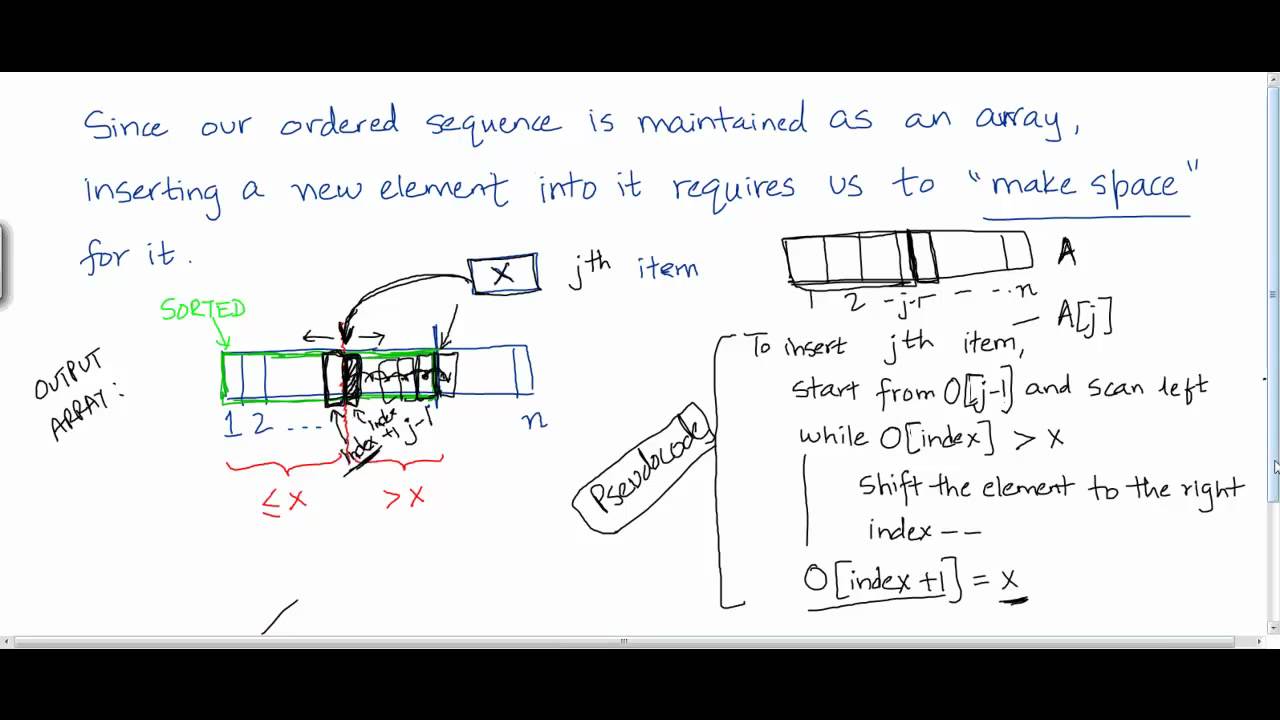 Since our ordered sequence is maintained as an array,
inserting a new element into it requires us to "make space"
for it.
X jth item
A
1 2 - j-1 - - .. n
SORTED
A[j]
OUTPUT
ARRAY:
1 2 ... index index +1 j-1 n
≤ X > X
Pseudocode
To insert jth item,
start from O[j-1] and scan left
while O[index] > X
Shift the element to the right
index --
O[index +1] = X